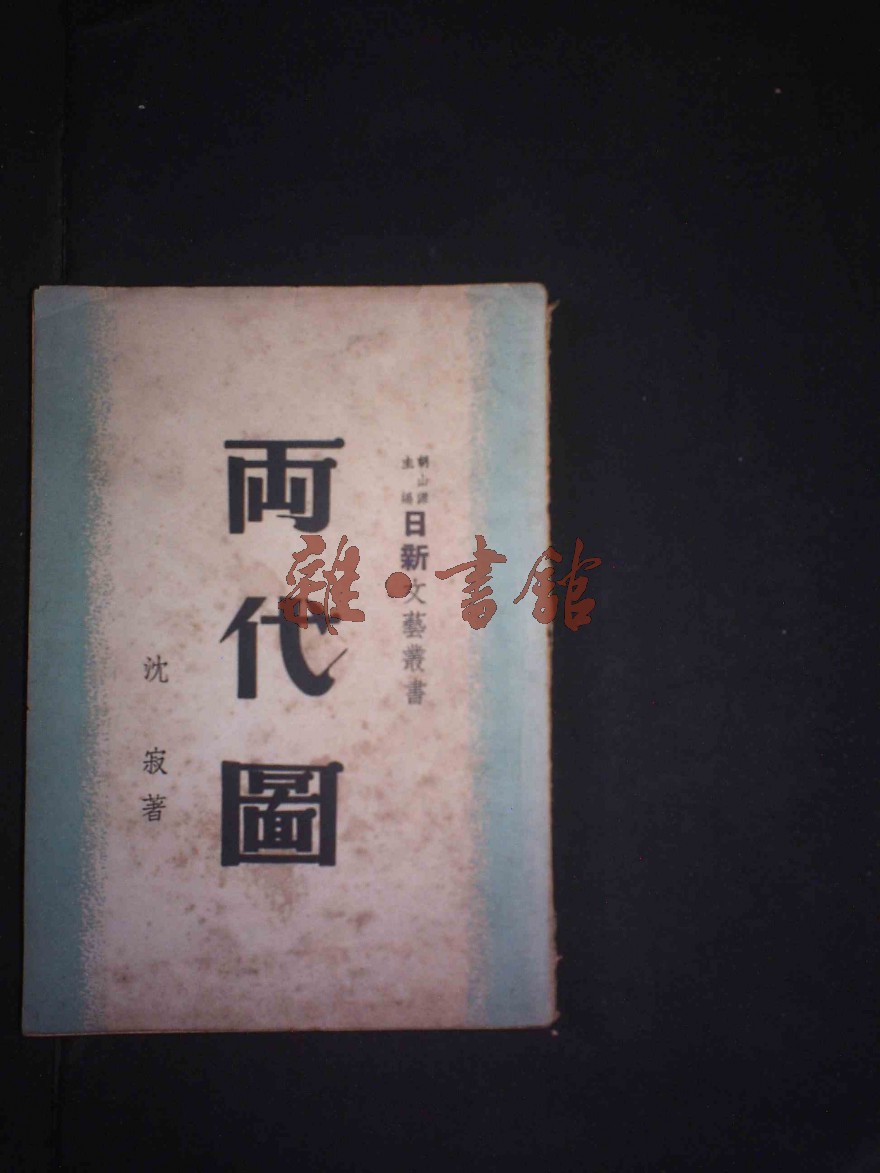 胡山源
主編
日新文藝叢書
両代圖
沈寂著
雜·書館